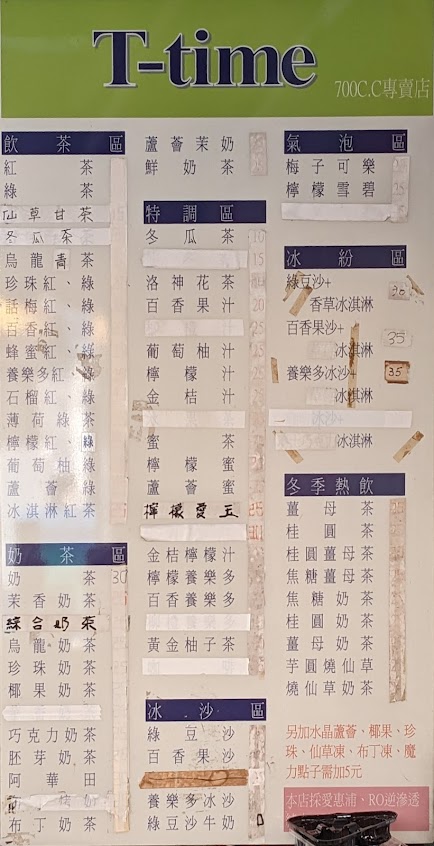 T-time
700C.C專賣店
飲茶區
紅茶
綠茶
仙草甘茶
冬瓜茶
烏龍青茶
珍珠紅、綠
話梅紅、綠
百香紅、綠
蜂蜜紅、綠
養樂多紅、綠
石榴紅、綠
薄荷綠茶
檸檬紅、綠
葡萄柚綠
蘆薈綠
冰淇淋紅茶
奶茶區
奶茶 30
茉香奶茶
綜合奶茶
烏龍奶茶
珍珠奶茶
椰果奶茶
巧克力奶茶
胚芽奶茶
阿華田
布丁奶茶
蘆薈茉奶
鮮奶茶
特調區
冬瓜茶
15
洛神花茶 20
百香果汁 20
葡萄柚汁 25
檸檬汁
金桔汁
蜜茶
檸檬蜜
蘆薈蜜
檸檬愛玉
金桔檸檬汁
檸檬養樂多
百香養樂多
黃金柚子茶
冰沙區
綠豆沙
百香果沙
養樂多冰沙
綠豆沙牛奶
氣泡區
梅子可樂
檸檬雪碧
冰紛區
綠豆沙+
香草冰淇淋
百香果沙+ 35
冰淇淋
養樂多冰沙+ 35
冰淇淋
冰沙+
冰淇淋
冬季熱飲
薑母茶
桂圓茶
桂圓薑母茶
焦糖薑母茶
焦糖奶茶
桂圓奶茶
薑母奶茶
芋圓燒仙草
燒仙草奶茶
另加水晶蘆薈、椰果、珍
珠、仙草凍、布丁凍、魔
力點子需加5元
本店採愛惠浦、RO逆滲透